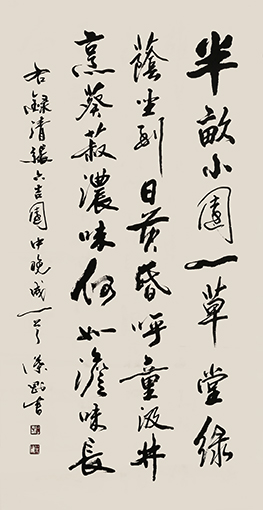 半畝小園一草堂緑
蔭坐到日黄昏呼童汲井
烹葵菽濃味何如澹味長
右録清張六吉園中晚成一首